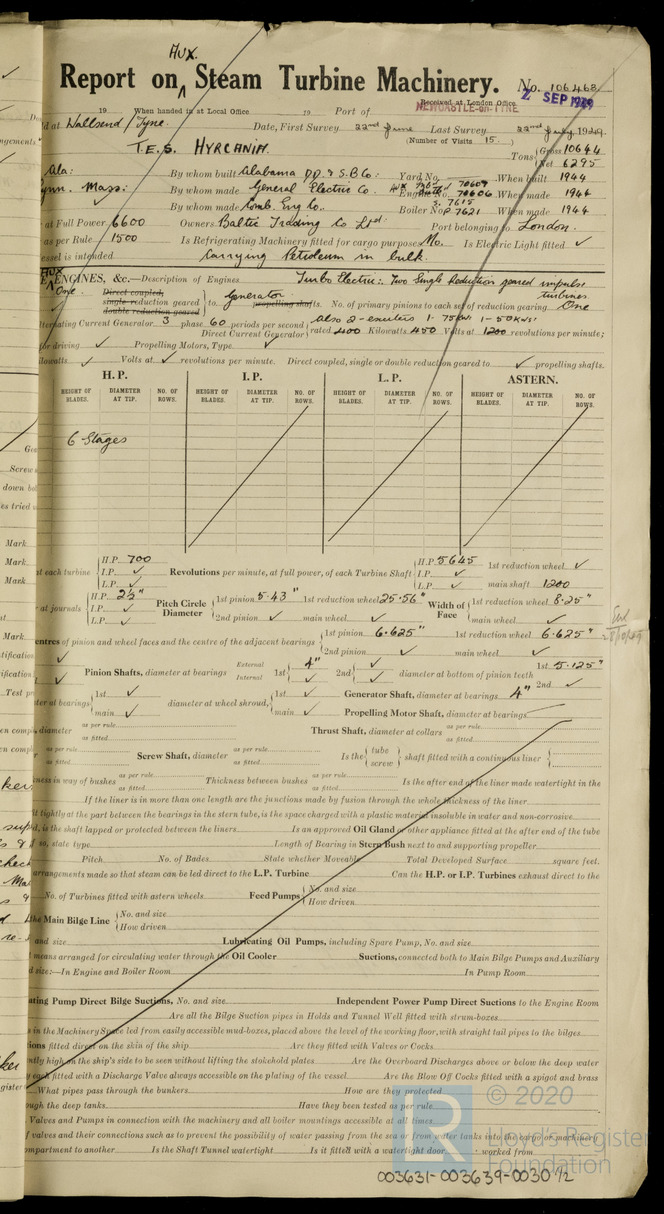 Aux.
Report on Steam Turbine Machinery. No. 106468
Received at London Office
NEWCASTLE-on-TYNE 2 SEP 1949
19 When handed in at Local Office 19 Port of
Wallsend / Tyne. Date, First Survey 22nd June Last Survey 22nd July 1949
(Number of Visits 15.)
T.E.S. HYRCANIA. Tons { Gross 10644
Net 6295
Ala: By whom built Alabama D.D. & S.B Co: Yard No. When built 1944
Mass: By whom made General Electric Co. 70609 70606 When made 1944
By whom made Comb. Eng Co. Boiler No. 7615 7621 When made 1944
at Full Power 6600 Owners Baltic Trading Co Ltd: Port belonging to London.
as per Rule 1500 Is Refrigerating Machinery fitted for cargo purposes No. Is Electric Light fitted ✓
is intended Carrying Petroleum in bulk.
AUX ENGINES, &c.—Description of Engines Turbo Electric: Two Single Reduction geared impulse turbines.
One Direct coupled, single reduction geared double reduction geared } to Generator propelling shafts. No. of primary pinions to each set of reduction gearing One
Also 2-exciters 1-75KW 1-50KW:
Alternating Current Generator 3 phase 60 periods per second
Direct Current Generator { rated 400 Kilowatts 450 Volts at 1200 revolutions per minute;
for driving ✓ Propelling Motors, Type ✓
Kilowatts ✓ Volts at ✓ revolutions per minute. Direct coupled, single or double reduction geared to ✓ propelling shafts.
H. P. I. P. L. P. ASTERN.
HEIGHT OF BLADES. DIAMETER AT TIP. NO. OF ROWS. HEIGHT OF BLADES. DIAMETER AT TIP. NO. OF ROWS. HEIGHT OF BLADES. DIAMETER AT TIP. NO. OF ROWS. HEIGHT OF BLADES. DIAMETER AT TIP. NO. OF ROWS.
6 Stages
at each turbine { H.P. 700 I.P. ✓ L.P. ✓ Revolutions per minute, at full power, of each Turbine Shaft { H.P. 5645 I.P. ✓ L.P. ✓ 1st reduction wheel ✓ main shaft 1200
at journals { H.P. 2½" I.P. ✓ L.P. ✓ Pitch Circle Diameter { 1st pinion 5.43" 1st reduction wheel 25.56" 2nd pinion ✓ main wheel ✓ Width of Face { 1st reduction wheel 8.25" main wheel ✓
centres of pinion and wheel faces and the centre of the adjacent bearings { 1st pinion 6.625" 1st reduction wheel 6.625" 2nd pinion ✓ main wheel ✓
Pinion Shafts, diameter at bearings External Internal 1st 4" 2nd ✓ diameter at bottom of pinion teeth 1st 5.125" 2nd ✓
at bearings { 1st ✓ main ✓ diameter at wheel shroud, { 1st ✓ main ✓ Generator Shaft, diameter at bearings 4"
Propelling Motor Shaft, diameter at bearings
diameter as per rule as fitted Thrust Shaft, diameter at collars as per rule as fitted
as per rule as fitted Screw Shaft, diameter as per rule as fitted Is the { tube screw } shaft fitted with a continuous liner {
in way of bushes as per rule as fitted Thickness between bushes as per rule as fitted Is the after end of the liner made watertight in the
If the liner is in more than one length are the junctions made by fusion through the whole thickness of the liner
tightly at the part between the bearings in the stern tube, is the space charged with a plastic material insoluble in water and non-corrosive
is the shaft lapped or protected between the liners Is an approved Oil Gland or other appliance fitted at the after end of the tube
If so, state type Length of Bearing in Stern Bush next to and supporting propeller
Pitch No. of Bades State whether Moveable Total Developed Surface square feet.
arrangements made so that steam can be led direct to the L.P. Turbine Can the H.P. or I.P. Turbines exhaust direct to the
No. of Turbines fitted with astern wheels Feed Pumps { No. and size How driven
the Main Bilge Line { No. and size How driven
and size Lubricating Oil Pumps, including Spare Pump, No. and size
means arranged for circulating water through the Oil Cooler Suctions, connected both to Main Bilge Pumps and Auxiliary
size:—In Engine and Boiler Room In Pump Room
Pump Direct Bilge Suctions, No. and size Independent Power Pump Direct Suctions to the Engine Room
Are all the Bilge Suction pipes in Holds and Tunnel Well fitted with strum-boxes
in the Machinery Space led from easily accessible mud-boxes, placed above the level of the working floor, with straight tail pipes to the bilges
fitted direct on the skin of the ship Are they fitted with Valves or Cocks
high on the ship's side to be seen without lifting the stokehold plates Are the Overboard Discharges above or below the deep water
each fitted with a Discharge Valve always accessible on the plating of the vessel Are the Blow Off Cocks fitted with a spigot and brass
What pipes pass through the bunkers How are they protected
the deep tanks Have they been tested as per rule
Valves and Pumps in connection with the machinery and all boiler mountings accessible at all times
valves and their connections such as to prevent the possibility of water passing from the sea or from water tanks into the cargo or machinery
compartment to another Is the Shaft Tunnel watertight Is it fitted with a watertight door worked from
© 2020
Lloyd's Register
Foundation
003631-003639-0030 1/2